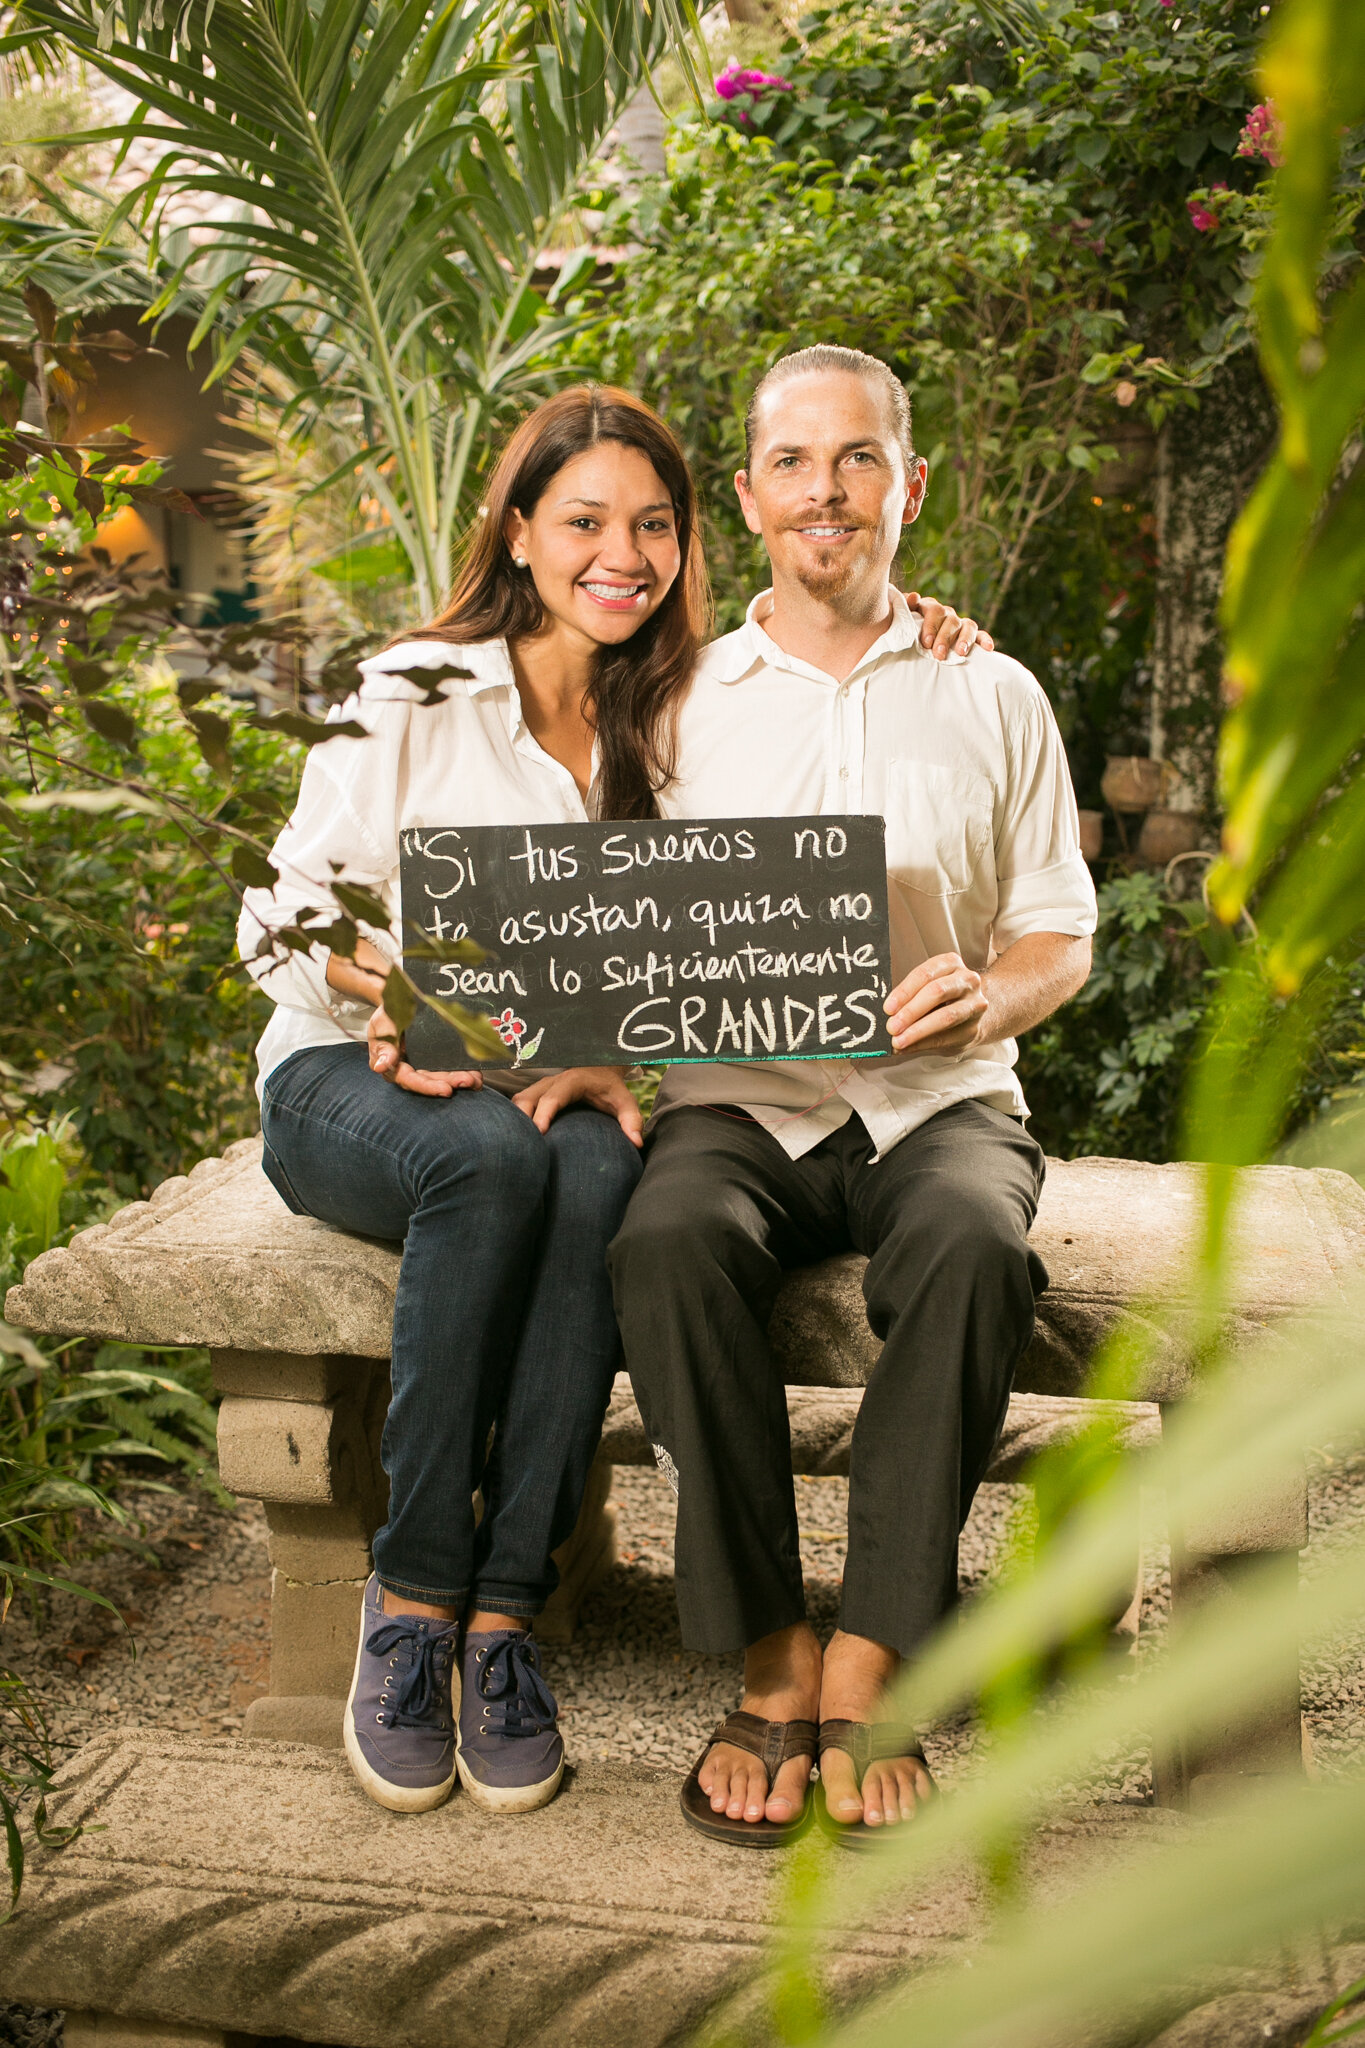 "Si tus sueños no
te asustan, quiza no
sean lo suficientemente
GRANDES"